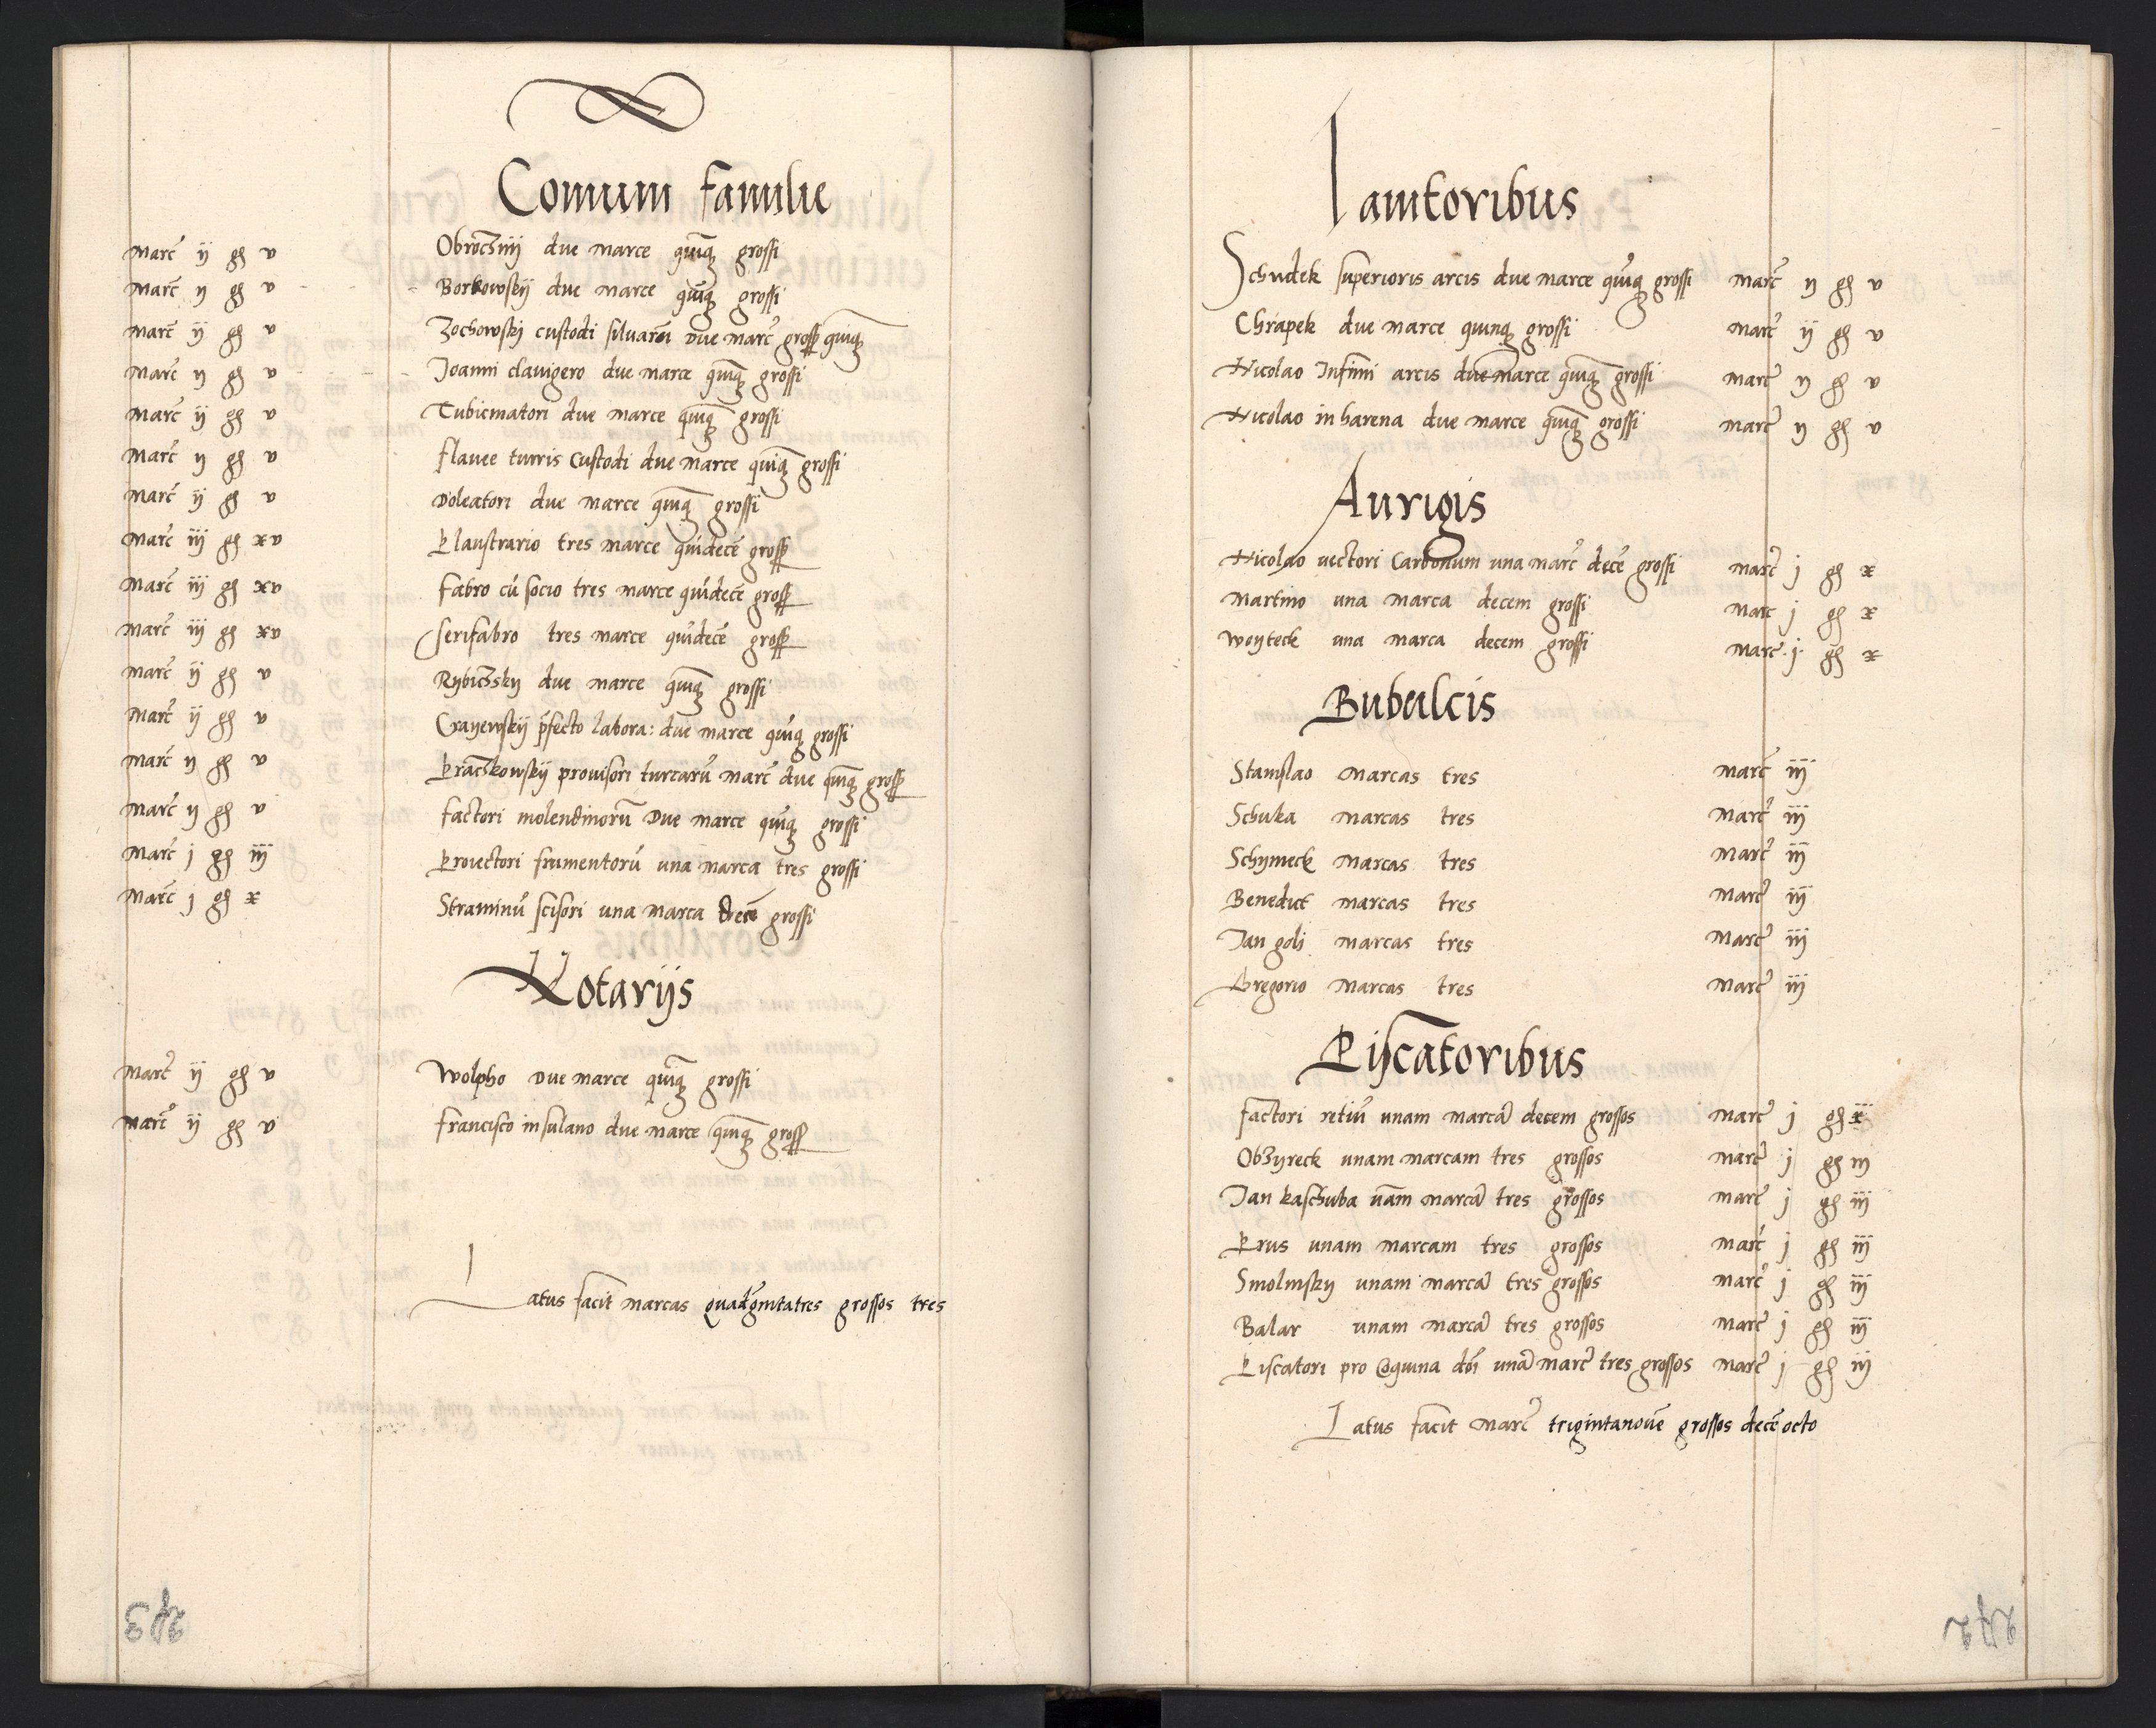 Comum familie
Marc̃ ij gℓ v Obrocznij due marce quiq̃ grossi
Marc̃ ij gℓ v Borkowskij due marce quiq̃ grossi
Marc̃ ij gℓ v Zochowskj custodi silvarũ due marc̃ gross quiq̃
Marc̃ ij gℓ v Joanni clavigero due marce quiq̃ grossi
Marc̃ ij gℓ v Tubicinatori due marce quiq̃ grossi
Marc̃ ij gℓ v flavee turris custodi due marce quiq̃ grossi
Marc̃ ij gℓ v Doleatori due marce quiq̃ grossi
Marc̃ iij gℓ xv Plaustrario tres marce quidecẽ gross
Marc̃ iij gℓ xv fabro cũ socio tres marce quidecẽ gross
Marc̃ iij gℓ xv serifabro tres marce quidecẽ gross
Marc̃ ij gℓ v Rybiczsky due marce quiq̃ grossi
Marc̃ ij gℓ v Grayewskij p̃fecto labora: due marce quiq̃ grossi
Marc̃ ij gℓ v Praczkowskij provisori turcarũ marc̃ due quiq̃ gross
Marc̃ ij gℓ v factori molendinorũ Due marce quiq̃ grossi
Marc̃ j gℓ iij Provectori frumentorũ una marca tres grossi
Marc̃ j gℓ x Straminũ scisori una marca decẽ grossi
Notarijs
Marc̃ ij gℓ v Wolpho Due marce quiq̃ grossi
Marc̃ ij gℓ v Francisco insulano due marce quiq̃ gross
Latus facit marcas quadr̃gintatres grossos tres
243
Ianitoribus
Schudek superioris arcis due marce quiq̃ grossi Marc̃ ij gℓ v
Chrapek due marce quinq̃ grossi Marc̃ ij gℓ v
Nicolao Infimi arcis due marce quiq̃ grossi Marc̃ ij gℓ v
Nicolao in harena due marce quiq̃ grossi Marc̃ ij gℓ v
Aurigis
Nicolao vectori Carbonum una marc̃ decẽ grossi Marc̃ j gℓ x
Martino una marca decem grossi Marc̃ j gℓ x
Woyteck una marca decem grossi Marc̃ j gℓ x
Bubulcis
Stanislao marcas tres Marc̃ iij
Schuka marcas tres Marc̃ iij
Schymeck marcas tres Marc̃ iij
Benedict marcas tres Marc̃ iij
Jan goli marcas tres Marc̃ iij
Gregorio Marcas tres Marc̃ iij
Piscatoribus
factori retiũ unam marcã decem grossos Marc̃ j gℓ x
Obzyreck unam marcam tres grossos Marc̃ j gℓ iij
Jan kaschuba unã marcã tres grossos Marc̃ j gℓ iij
Prus unam marcam tres grossos Marc̃ j gℓ iij
Smolinsky unam marcã tres grossos Marc̃ j gℓ iij
Balar unam marcã tres grossos Marc̃ j gℓ iij
Piscatori pro Coquina dñi unã marc̃ tres grossos Marc̃ j gℓ iij
Latus facit Marc̃ trigintanovẽ grossos decẽ octo
242